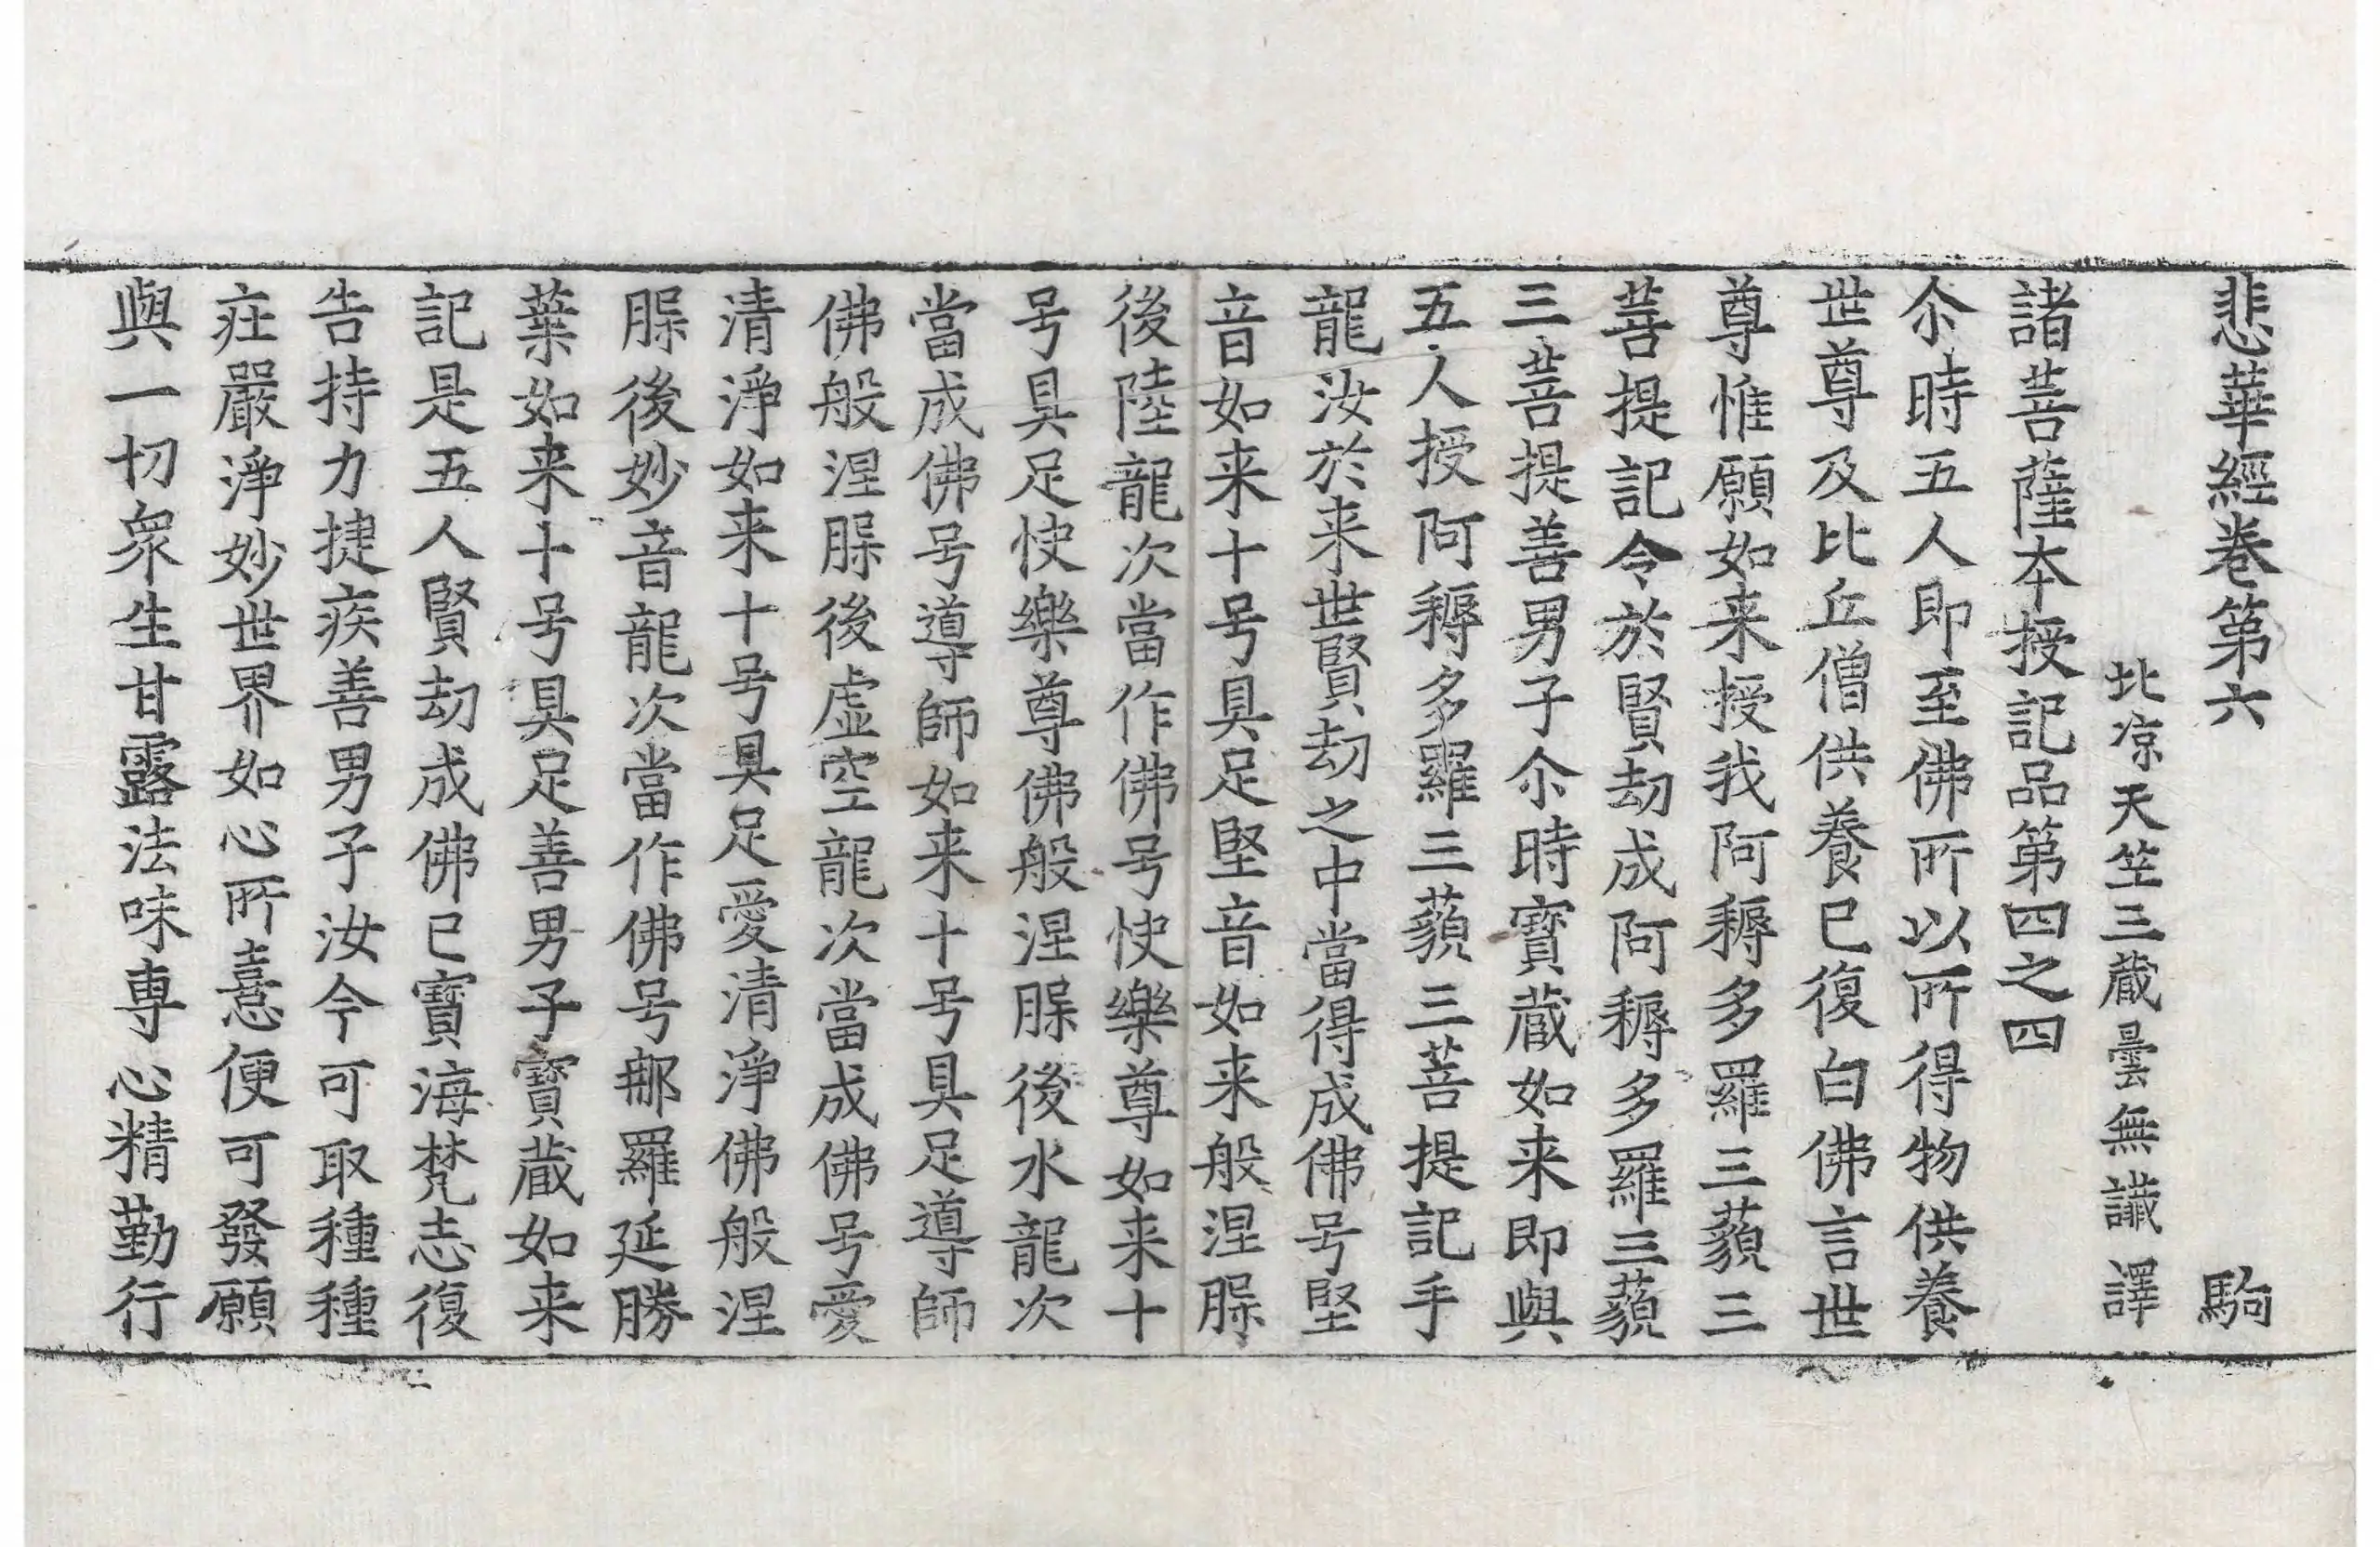 悲華經卷第六 駒
北涼天竺三藏曇無讖譯
諸菩薩本授記品第四之四
尒時五人即至佛所以所得物供養
世尊及比丘僧供養已復白佛言世
尊惟願如来授我阿耨多羅三藐三
菩提記令於賢劫成阿耨多羅三藐
三菩提善男子尒時寶藏如来即與
五人授阿耨多羅三藐三菩提記手
龍汝於来世賢劫之中當得成佛号堅
音如来十号具足堅音如来般涅𣨼
後陸龍次當作佛号快樂尊如来十
号具足快樂尊佛般涅𣨼後水龍次
當成佛号導師如来十号具足導師
佛般涅𣨼後虛空龍次當成佛号愛
清淨如来十号具足愛清淨佛般涅
𣨼後妙音龍次當作佛号那羅延勝
葉如来十号具足善男子寶藏如来
記是五人賢劫成佛已寶海梵志復
告持力捷疾善男子汝今可取種種
莊嚴淨妙世界如心所憙便可發願
與一切衆生甘露法味專心精勤行